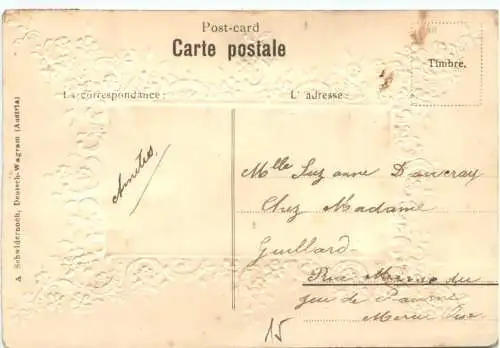 Post-card
Carte postale
Timbre.
La correspondance:
L'adresse:
A Schwidernoch, Deutsch-Wagram (Austria)
Amitiés
Mlle Suzanne
Chez Madame
Guillard
Rue du
jeu de Paume
Meru Oise
15